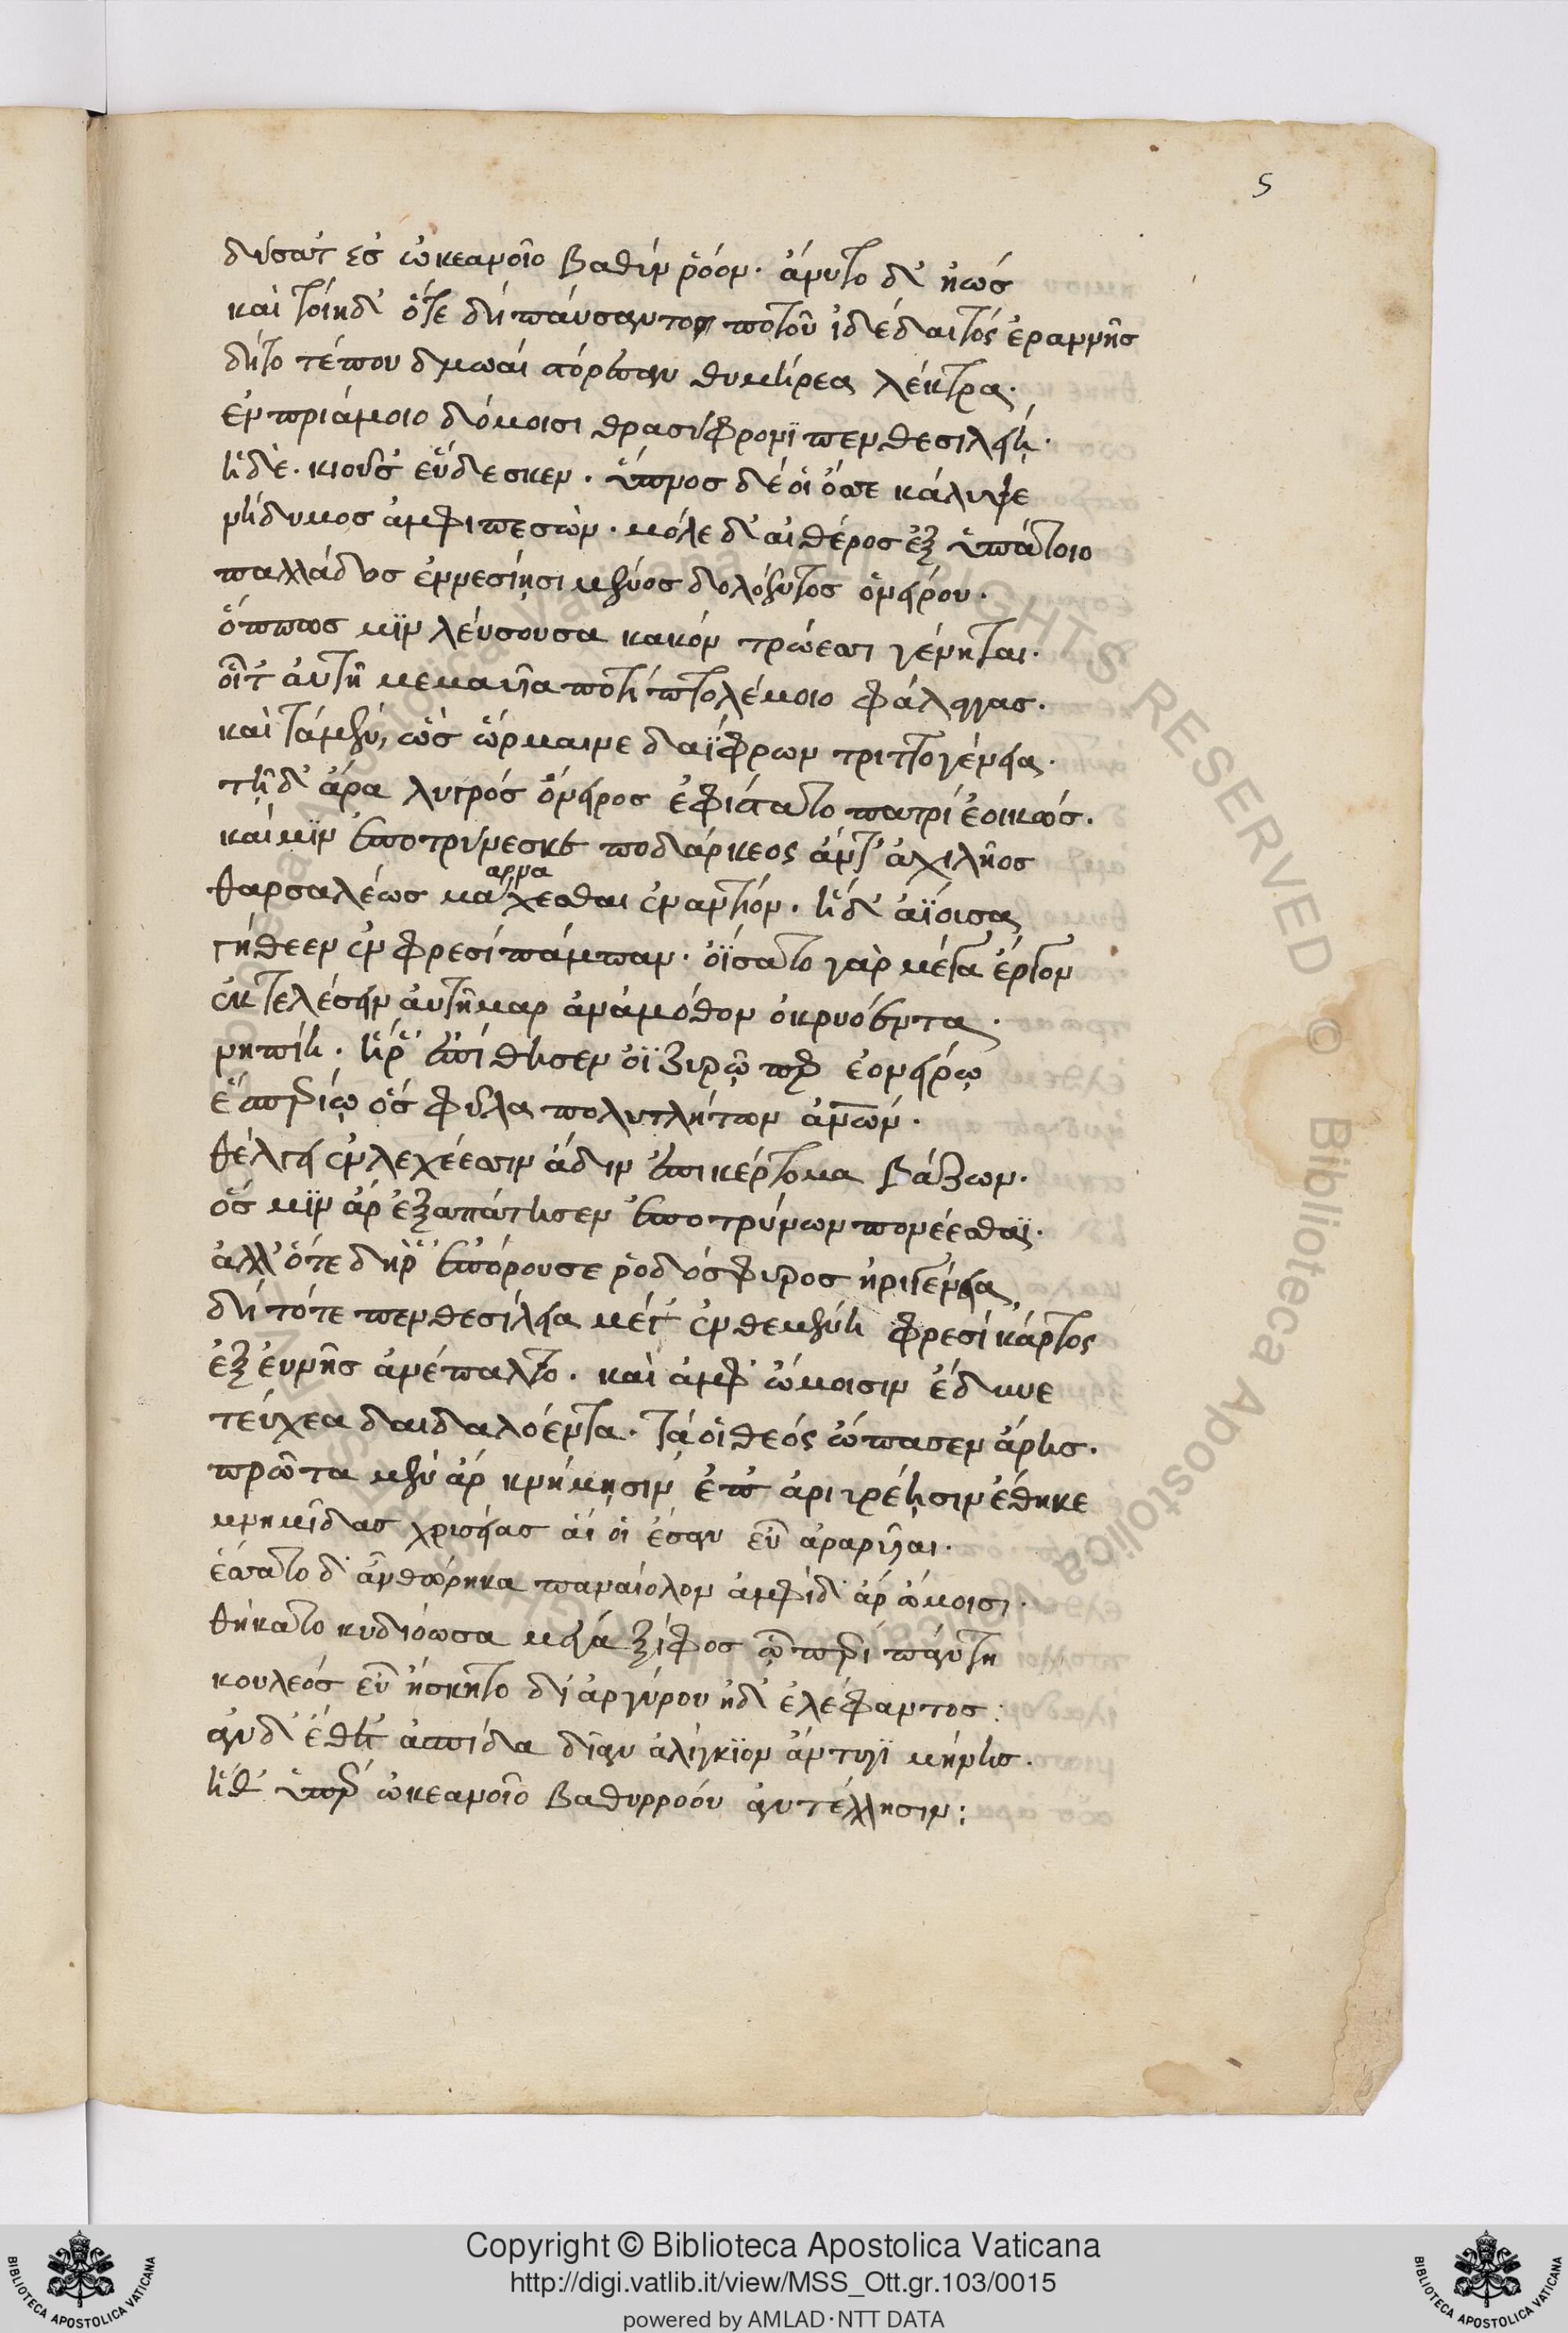 5
δύσατ' ἐσ ὠκεανοῖο βαθὺν ῥόον· ἄνυτο δ' ἠώσ
καὶ τοίηδ' ὅτε δὴ παύσαντο ποτοῦ ἰδὲ δαιτός ἐραννῆσ
δὴ τότέ που δμωαὶ στόρεσαν θυμήρεα λέκτρα.
ἐν πριάμοιο δόμοισι θρασύφρονϊ πενθεσιλείη.
ἡ δὲ. κιοῦσ' εὕδεσκεν. ὕπνοσ δέ οἱ ὄσσε κάλυψε
νήδυμοσ ἀμφιπεσών. μόλε δ' αἰθέροσ ἐξ ὑπάτοιο
παλλάδοσ ἐννεσίησι μένοσ δολόεντοσ ὀνείρου.
ὅππωσ μϊν λεύσουσα κακὸν τρώεσσι γένηται.
οἷ τ' αὐτῆ μεμαυῖα ποτὶ πτολέμοιο φάλαγγασ.
καὶ τὰ μὲν, ὣσ ὥρμαινε δαΐφρων τριττογένεια.
τῆ δ' ἄρα λυγρόσ ὄνειροσ ἐφίστατο πατρὶ ἐοικώσ.
καί μϊν ἐποτρύνεσκε ποδάρκεοσ ἄντ' ἀχιλῆοσ
θαρσαλέωσ μάρνασθαι χεσθαι ἐναντίον. ἡ δ' ἀΐοισα
γήθεεν ἐν φρεσὶ πάμπαν. ὀΐσατο γὰρ μέγα ἔργον
ἐκτελέσειν αὐτῆμαρ ἀνὰ μόθον ὀκρυόεντα.
νηπίη. ἥ ῥ' ἐπίθησεν ὀϊζυρῶ περ ἐονείρω
ἑσπερίω ὅσ φῦλα πολυτλήτων ἀνθρώπων.
θέλγει ἐν λεχέεσσιν ἄδην ἐπικέρτομα βάζων.
ὅσ μϊν ἄρ' ἐξαπάτησεν ἐποτρύνων πονέεσθαϊ.
ἀλλ' ὅτε δή ῥ' ἐπόρουσε ῥοδόσφυροσ ἠριγένεια
δὴ τότε πενθεσίλεια μέγ' ἐνθεμένη φρεσὶ κάρτοσ
ἐξ εὐνῆσ ἀνέπαλτο. καὶ ἀμφ' ὤμοισιν ἔδυνε
τεύχεα δαιδαλόεντα. τά οἱ θεόσ ὤπασεν ἄρησ.
πρῶτα μὲν ἂρ κνήμησιν ἐπ' ἀργυρέησιν ἔθηκε
κνημῖδασ χρυσείασ αἵ οἱ ἔσαν εὖ ἀραρυῖαι.
ἕσσατο δ' ἂν θώρηκα παναίολον ἀμφὶ δ' ἄρ' ὤμοισι.
θήκατο κυδιόωσα μέγα ξίφοσ ὧ περὶ πάντη
κουλεόσ εὖ ἤσκητο δι' ἀργύρου ἠδ' ἐλέφαντοσ:
ἂν δ' ἔθετ' ἀσπίδα δῖαν ἀλίγκϊον ἄντυγϊ μήνησ.
ἥ θ' ὑπὲρ ὠκεανοῖο βαθυρρόου ἀντέλλησιν:
Copyright © Biblioteca Apostolica Vaticana
http://digi.vatlib.it/view/MSS_Ott.gr.103/0015
powered by AMLAD·NTT DATA